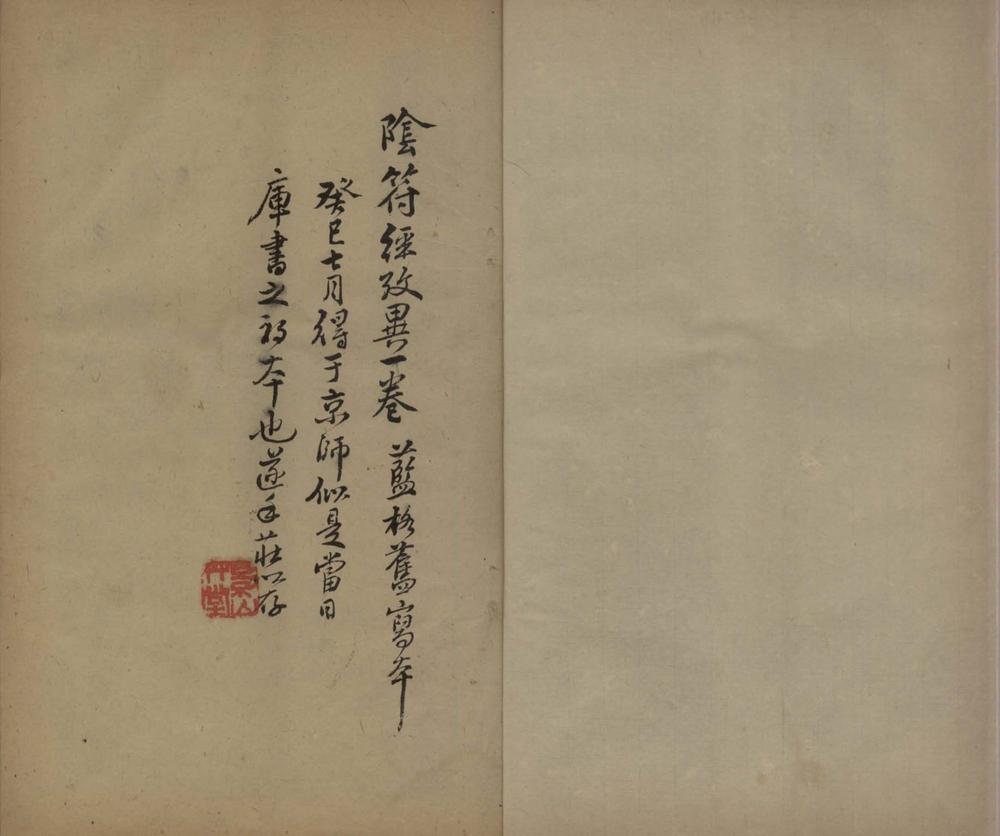 陰符經攷異一卷 藍格舊寫本
癸巳七月得于京師似是當日
庫書之初本也遂手莊以存